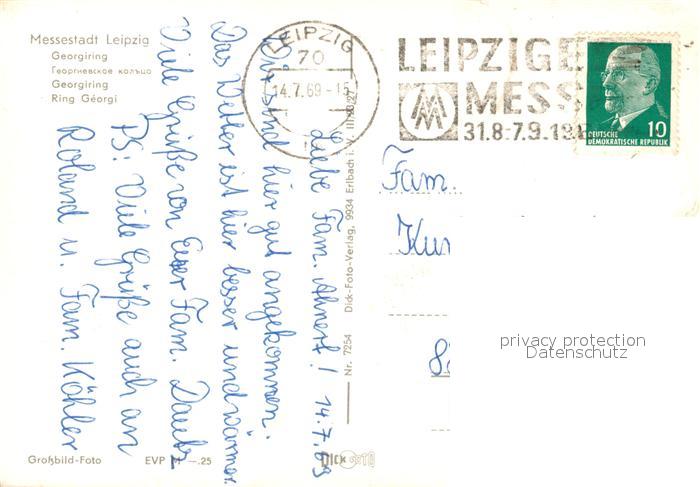 Messestadt Leipzig
Georgiring
Георгиевское кольцо
Georgiring
Ring Géorgi
LEIPZIG
70
14.7.69-15
LEIPZIGE
MESS
31.8.-7.9.19
10
DEUTSCHE
DEMOKRATISCHE REPUBLIK
Liebe Fam. Ahnert! 14.7.69
Wir sind hier gut angekommen.
Das Wetter ist hier besser und wärmer.
Viele Grüße von Euer Fam. Daube
PS: Viele Grüße auch an
Roland u. Fam. Köhler
Nr. 7254 Dick-Foto-Verlag, 9934 Erlbach i. V.
Fam.
Kur
8
privacy protection
Datenschutz
Großbild-Foto EVP M —.25
DICK FOTO